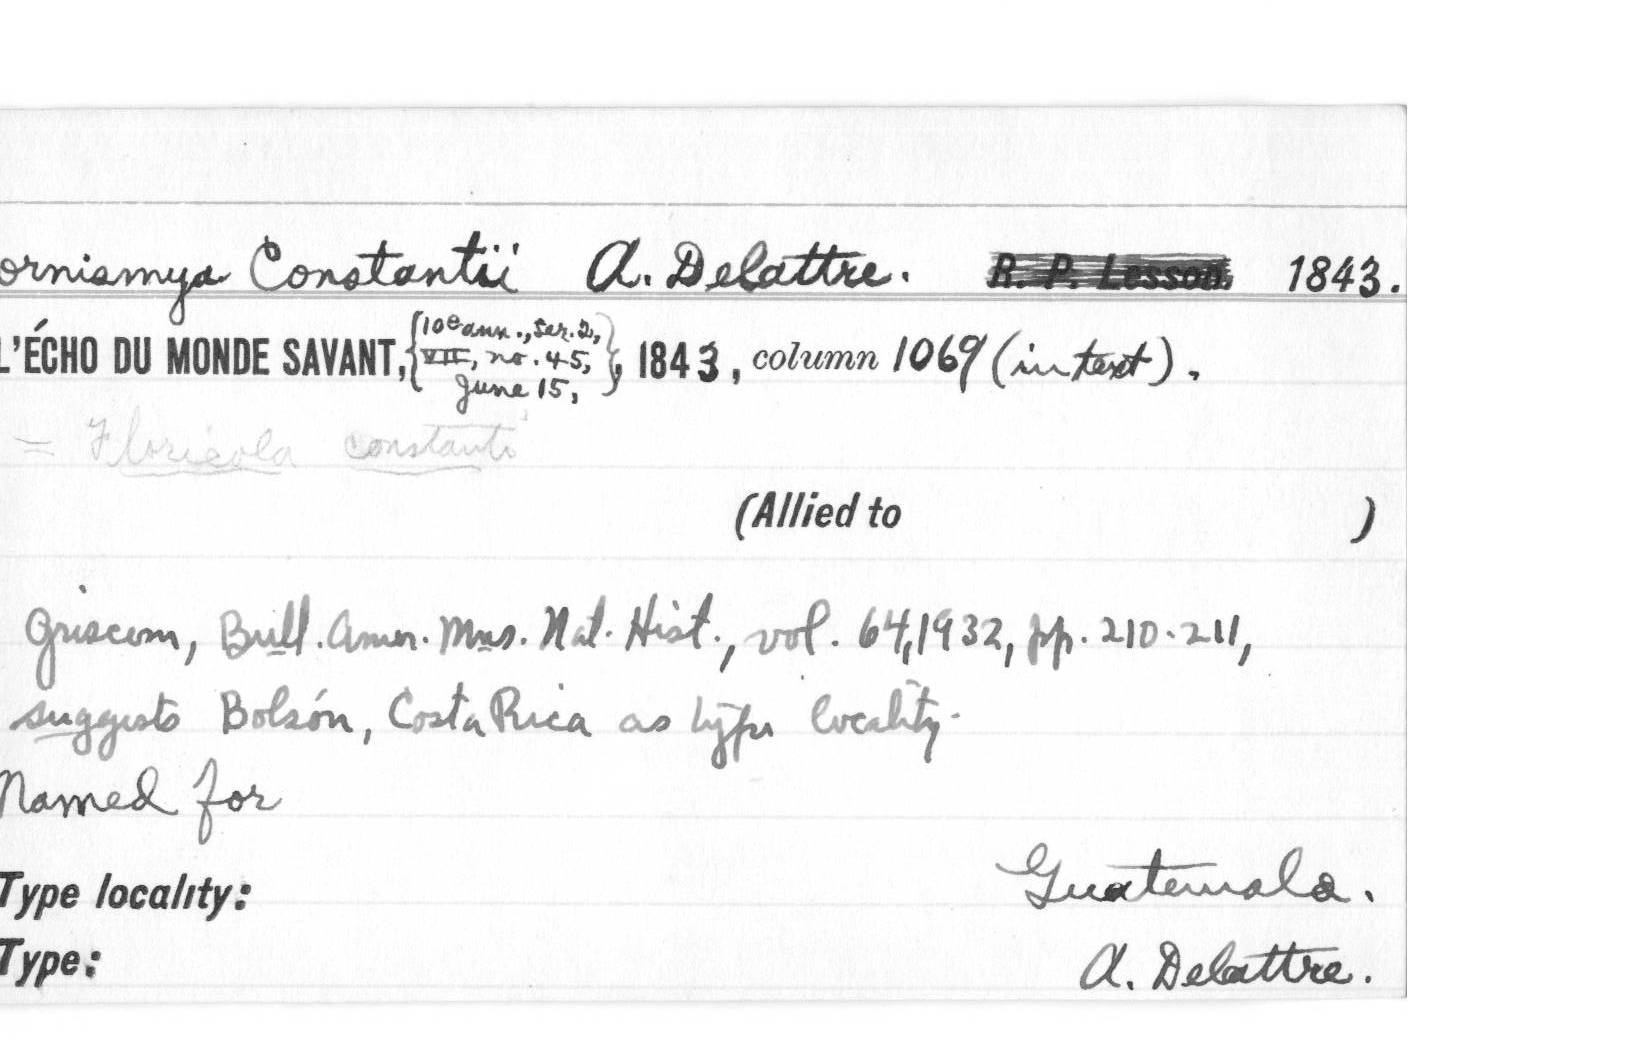 ornismya Constantii A. Delattre. R. P. Lesson. 1843.
L'ÉCHO DU MONDE SAVANT, {10e ann., Ser. 2, VII, no. 45, June 15,}, 1843, column 1069 (in text).
= Floricola constanti
(Allied to )
Griscom, Bull. Amer. Mus. Nat. Hist., vol. 64, 1932, pp. 210-211,
suggests Bolsón, Costa Rica as type locality.
Named for
Type locality: Guatemala.
Type: A. Delattre.